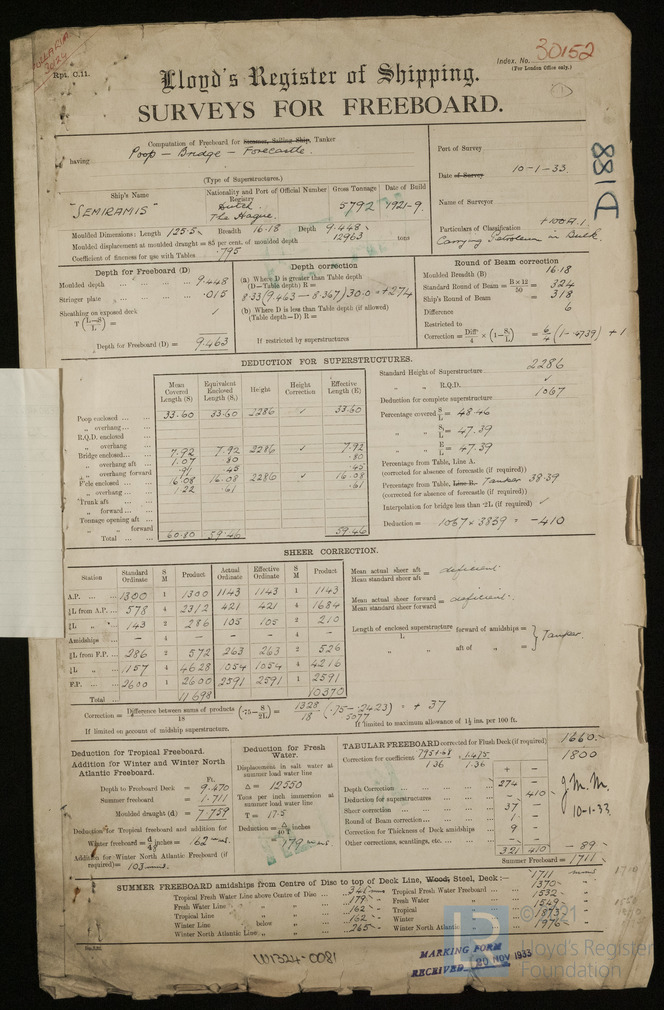 30152
Index. No.
(For London Office only.)
Rpt. C.11.
Lloyd's Register of Shipping.
SURVEYS FOR FREEBOARD.
D188
Computation of Freeboard for Summer, Sailing Ship, Tanker
having Poop — Bridge — Forecastle.
(Type of Superstructures.)
Port of Survey
Date of Survey 10-1-33.
Name of Surveyor
Particulars of Classification +100A.1
Carrying Petroleum in Bulk.
Ship's Name
Nationality and Port of Official Number Registry
Gross Tonnage
Date of Build
"SEMIRAMIS"
Dutch
The Hague.
5792
1921-9.
Moulded Dimensions: Length 125.5 Breadth 16.18 Depth 9.448
Moulded displacement at moulded draught = 85 per cent. of moulded depth 12963 tons
Coefficient of fineness for use with Tables .795
Depth for Freeboard (D)
Moulded depth 9.448
Stringer plate .015
Sheathing on exposed deck
T (L—S / L) =
Depth for Freeboard (D) = 9.463
Depth correction
(a) Where D is greater than Table depth
(D—Table depth) R =
8.33 (9.463 — 8.367) 30.0 = +274
(b) Where D is less than Table depth (if allowed)
(Table depth—D) R =
If restricted by superstructures
Round of Beam correction
Moulded Breadth (B) 16.18
Standard Round of Beam = B×12 / 50 = 324
Ship's Round of Beam = 318
Difference 6
Restricted to
Correction = Diff / 4 × (1—S₁ / L) = 6/4 (1-.4739) + 1
DEDUCTION FOR SUPERSTRUCTURES.
Mean Covered Length (S)
Equivalent Enclosed Length (S₁)
Height
Height Correction
Effective Length (E)
Poop enclosed 33.60 33.60 2286 ✓ 33.60
„ overhang
R.Q.D. enclosed
„ overhang
Bridge enclosed 7.92 7.92 2286 ✓ 7.92
„ overhang aft 1.07 .80 .80
„ overhang forward .91 .45 .45
F'cle enclosed 16.08 16.08 2286 ✓ 16.08
„ overhang 1.22 .61 .61
Trunk aft
„ forward
Tonnage opening aft
„ „ forward
Total 60.80 59.46 59.46
Standard Height of Superstructure 2286
„ „ R.Q.D. ✓
Deduction for complete superstructure 1067
Percentage covered S/L = 48.46
„ „ S₁/L = 47.39
„ „ E/L = 47.39
Percentage from Table, Line A.
(corrected for absence of forecastle (if required))
Percentage from Table, Line B. Tanker 38.39
(corrected for absence of forecastle (if required))
Interpolation for bridge less than ·2L (if required) ✓
Deduction = 1067 × 3839 = -410
SHEER CORRECTION.
Station
Standard Ordinate
S M
Product
Actual Ordinate
Effective Ordinate
S M
Product
A.P. 1300 1 1300 1143 1143 1 1143
⅙L from A.P. 578 4 2312 421 421 4 1684
⅓L „ 143 2 286 105 105 2 210
Amidships - 4 - - - 4 -
⅓L from F.P. 286 2 572 263 263 2 526
⅙L „ 1157 4 4628 1054 1054 4 4216
F.P. 2600 1 2600 2591 2591 1 2591
Total 11698 10370
Mean actual sheer aft / Mean standard sheer aft = deficient
Mean actual sheer forward / Mean standard sheer forward = deficient.
Length of enclosed superstructure / L forward of amidships = Tanker.
„ „ aft of „ =
Correction = Difference between sums of products / 18 (·75—S / 2L) = 1328 / 18 (.75-.2423) = + 37
.5077
If limited on account of midship superstructure.
If limited to maximum allowance of 1½ ins. per 100 ft.
Deduction for Tropical Freeboard.
Addition for Winter and Winter North Atlantic Freeboard.
Ft.
Depth to Freeboard Deck = 9.470
Summer freeboard = 1.711
Moulded draught (d) = 7.759
Deduction for Tropical freeboard and addition for Winter freeboard d/48 inches = 162
Addition for Winter North Atlantic Freeboard (if required) = 103
Deduction for Fresh Water.
Displacement in salt water at summer load water line
Δ = 12550
Tons per inch immersion at summer load water line
T = 17.5
Deduction = Δ / 40 T inches
= 179
TABULAR FREEBOARD corrected for Flush Deck (if required) 1660
Correction for coefficient .795+.68 / 1.36 = 1.475 / 1.36 1800
+ —
Depth Correction 274 -
Deduction for superstructures - 410
Sheer correction 37 -
Round of Beam correction 1 -
Correction for Thickness of Deck amidships 9 -
Other corrections, scantlings, etc. - -
321 410 - 89
Summer Freeboard = 1711
J.M.M.
10-1-33
SUMMER FREEBOARD amidships from Centre of Disc to top of Deck Line, Wood, Steel, Deck:— 1711
Tropical Fresh Water Line above Centre of Disc 341
Fresh Water Line „ „ 179
Tropical Line „ „ 162
Winter Line below „ 162
Winter North Atlantic Line „ „ 265
Tropical Fresh Water Freeboard 1370
Fresh Water „ 1532
Tropical „ 1549
Winter „ 1873
Winter North Atlantic „ 1976
W1324-0081
MARKING FORM
RECEIVED 20 NOV 1933
© 2021
Lloyd's Register
Foundation